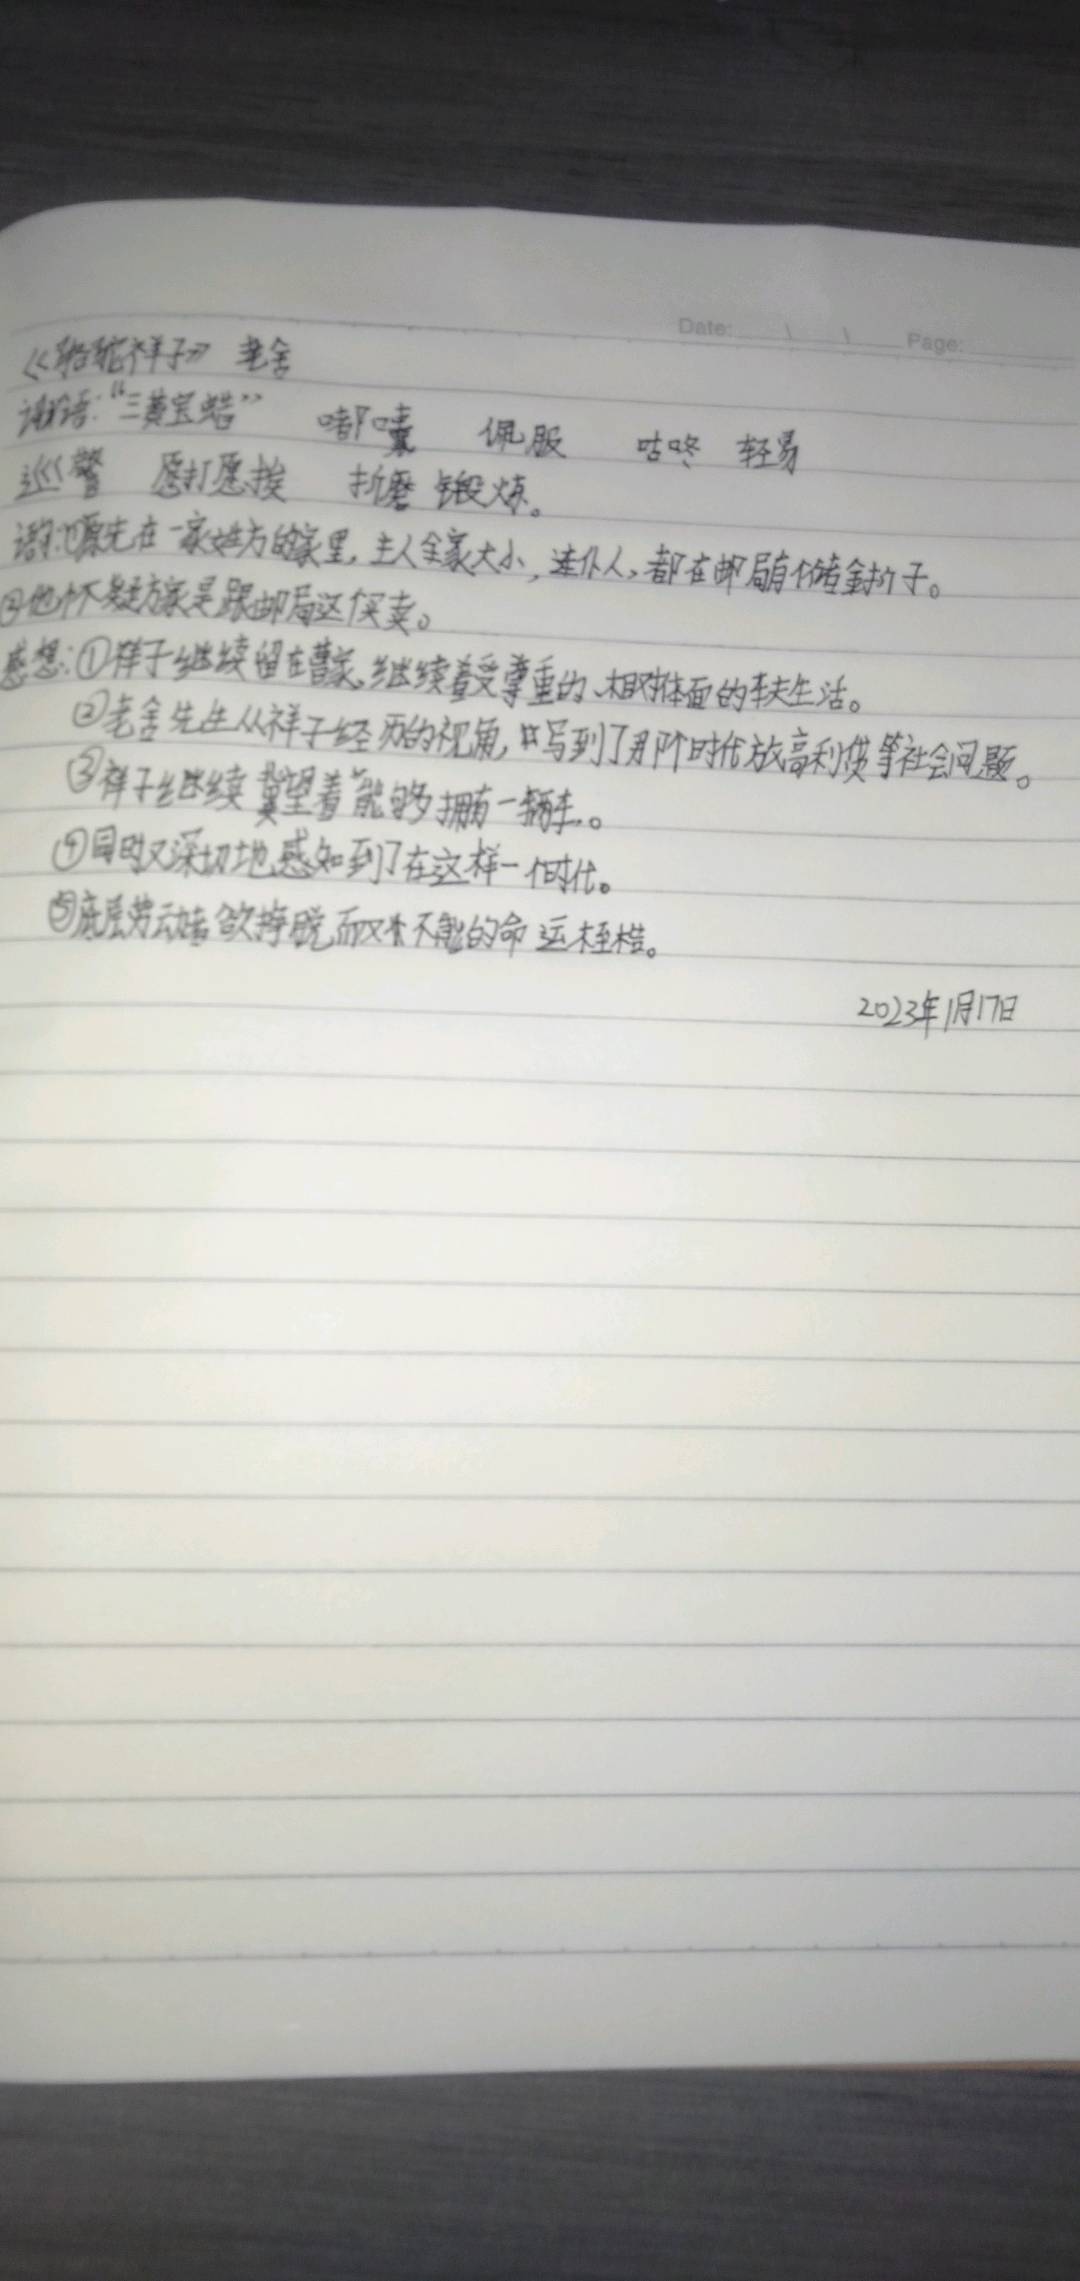 Date: Page:
《骆驼祥子》 老舍
词语:“三黄宝蜡” 嘟囔 佩服 咕咚 轻易
巡警 愿打愿挨 折磨 锻炼。
语句:①原先在一家姓方的家里,主人全家大小,连仆人,都在邮局有个储金折子。
②他怀疑方家是跟邮局这个买卖。
感想:①祥子继续留在曹家,继续着受尊重的、相对体面的车夫生活。
②老舍先生从祥子经历的视角,书写到了那个时代放高利贷等社会问题。
③祥子继续冀望着能够拥有一辆车。
④同时又深切地感知到了在这样一个时代。
⑤底层劳动者欲挣脱而又不能的命运桎梏。
2023年1月17日